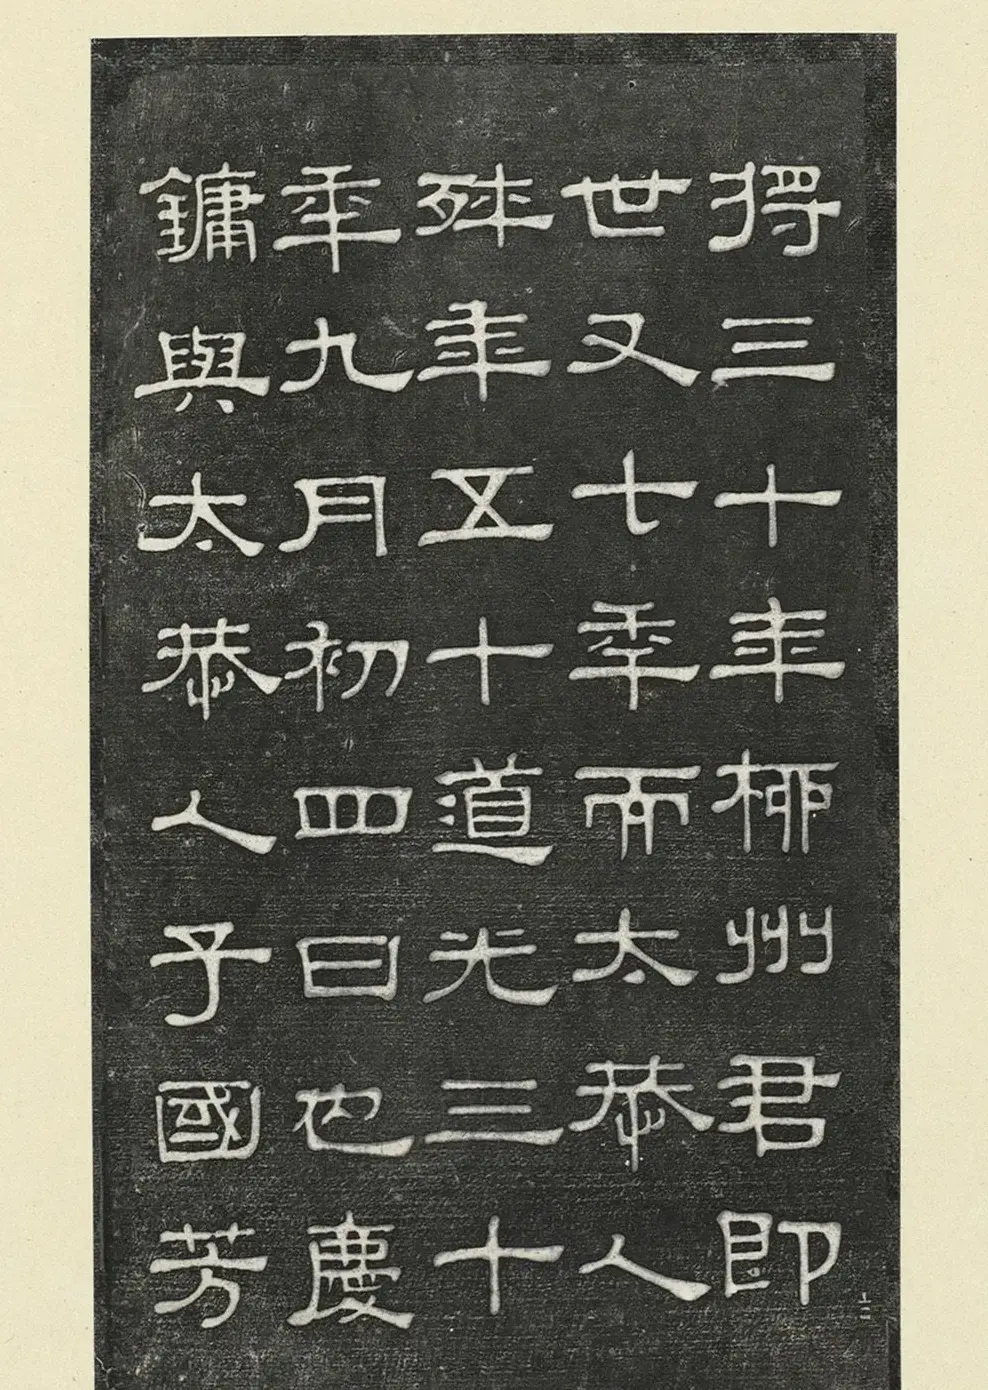 得三十年柳州君即
世又七年而太恭人
殊年五十道光三十
年九月初四日也慶
鏞與太恭人子國芳